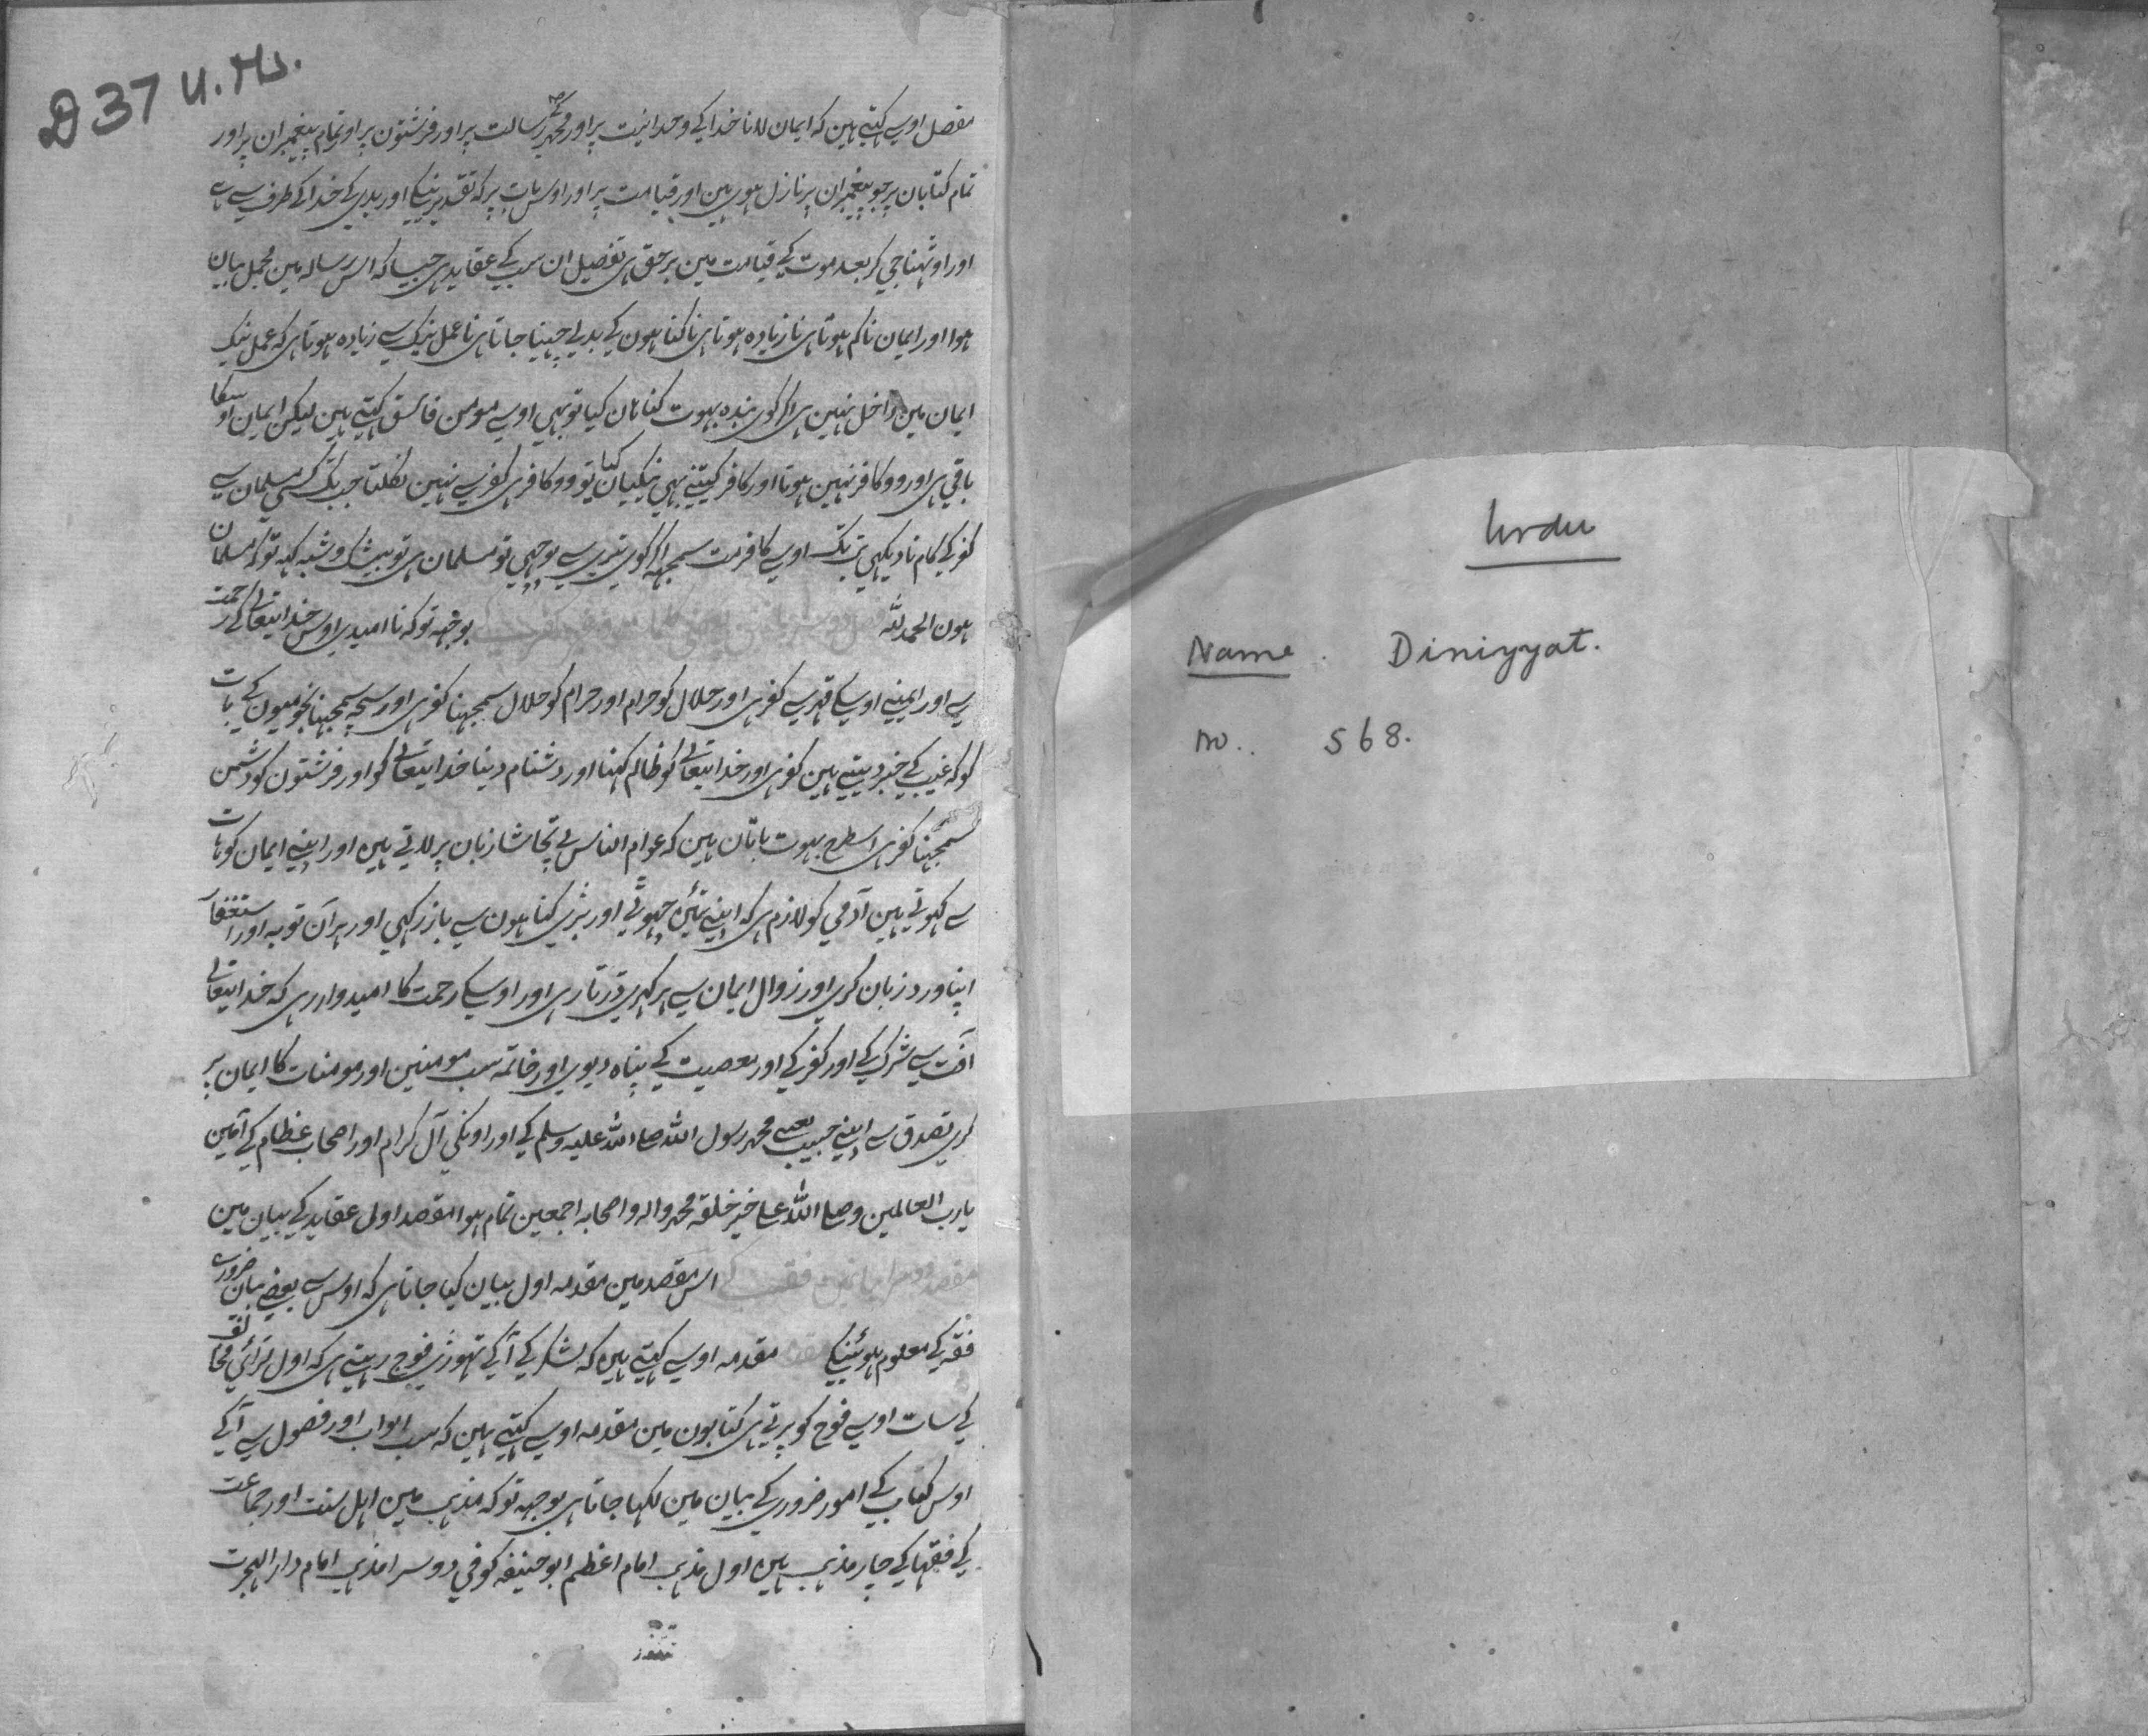 D 37 U. Ms.
مفصل اوسے کہتے ہین کہ ایمان لانا خدا کے وحدانیت پر اور محمد کے رسالت پر اور فرشتون پر اور تمام پیغمبران پر اور
تمام کتابان پر جو پیغمبران پر نازل ہوی ہین اور قیامت پر اور اوس بات پر کہ تقدیر نیکے اور بدی کے خدا کے طرف سے ہے
اور اوٹہنا جی کر بعد موت کے قیامت مین برحق ہی تفصیل ان سب کے عقاید ہی جیسا کہ اس رسالہ مین مجمل بیان
ہوا اور ایمان نا کم ہوتا ہی نا زیادہ ہوتا ہی نا کناہون کے بدلے چہینا جاتا ہی نا عمل نیک سے زیادہ ہوتا ہی کہ عمل نیک
ایمان مین داخل نہین ہی اکر کوی بندہ بہوت کناہان کیا تو بہی اوسے مومن فاسق کہتے ہین لیکن ایمان اوسکا
باقی ہی اور وو کافر نہین ہوتا اور کافر کیتنے بہی نیکیان کیا تو وو کافر ہی کفر سے نہین نکلتا جب تک کسی مسلمان سے
کفر کے کام نا دیکہی تب تک اوسے کافر مت سمجہ اکر کوی تیری سے پوچہی تو مسلمان ہی تو بیشک و شبہ کہہ تو کہ مسلمان
ہون الحمد للہ بوجہہ تو کہ نا امیدی اوس خدایتعالی کے رحمت
سے اور ایمنے اوسکے قہر سے کفر ہی اور حلال کو حرام اور حرام کو حلال سمجہنا کفر ہی اور سچہ سمجہنا نجومیون کے بات
کو کہ غیب کے خبر دیتے ہین کفر ہی اور خدایتعالی کو ظالم کہنا اور دشنام دینا خدایتعالی کو اور فرشتون کو دشمن
سمجہنا کفر ہی اسطرح بہوت باتان ہین کہ عوام الناس بے تحاشا زبان پر لاتے ہین اور اپنے ایمان کو ہات
سے کہوتے ہین آدمی کو لازم ہی کہ اپنے تئین چہوٹے اور بڑی کناہون سے باز رکہی اور ہر آن توبہ اور استغفار
اپنا ورد زبان کری اور زوال ایمان سے ہر کہڑی ڈرتا رہی اور اوسکے رحمت کا امیدوار رہی کہ خدایتعالی
آفت سے شرک کے اور کفر کے اور معصیت کے پناہ دیوی اور خاتمہ سب مومنین اور مومنات کا ایمان پر
کری تصدق سے اپنے حبیب یعنے محمد رسول اللہ صلی اللہ علیہ وسلم کے اور اونکی آل کرام اور اصحاب عظام کے آمین
یا رب العالمین وصلی اللہ علی خیر خلقہ محمد والہ واصحابہ اجمعین تمام ہوا مقصد اول عقاید کے بیان مین
اس مقصد مین مقدمہ اول بیان کیا جاتا ہی کہ اوس سے بعضے بیان ضروری
فقہ کے معلوم ہوئینکے مقدمہ اوسے کہتے ہین کہ لشکر کے آکے تہوڑی فوج رہتے ہی کہ اول لڑائی مخالف
کے سات اوسے فوج کو پڑتے ہی کتابون مین مقدمہ اوسے کہتے ہین کہ سب ابواب اور فصول سے آکے
اوس کتاب کے امور ضروری کے بیان مین لکہا جاتا ہی بوجہہ تو کہ مذہب مین اہل سنت اور جماعت
کے فقہا کے چار مذہب ہین اول مذہب امام اعظم ابو حنیفہ کوفی دوسرا مذہب امام دار الہجرت
Urdu
Name. Diniyyat.
no.. 568.